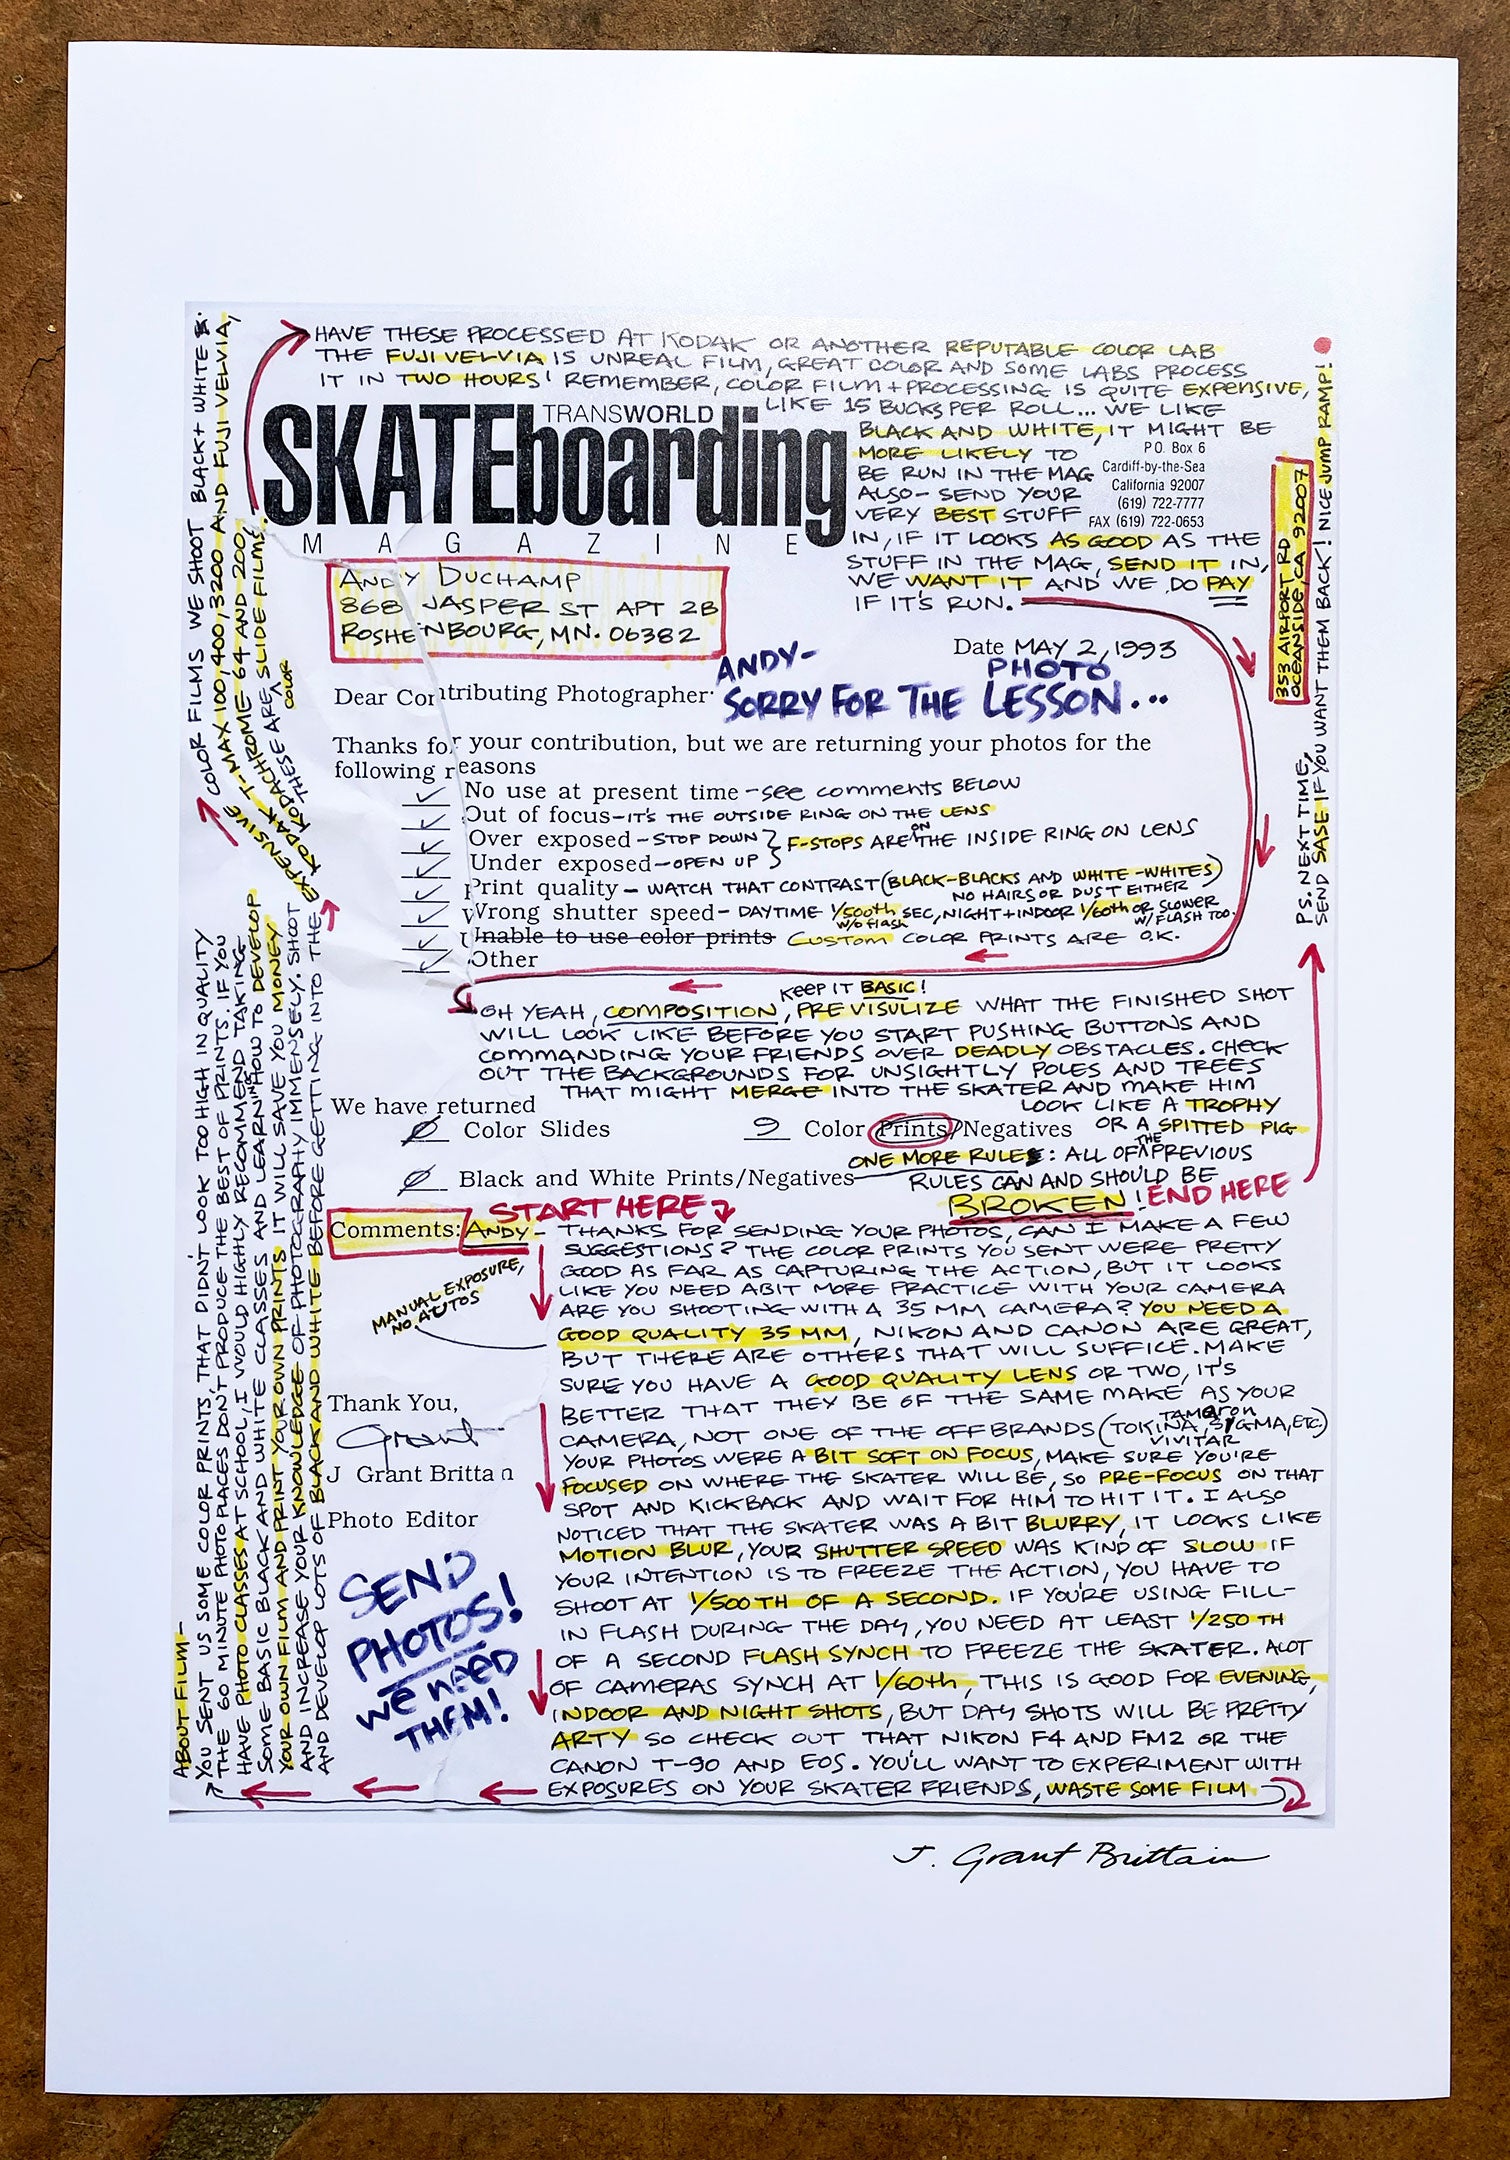 HAVE THESE PROCESSED AT KODAK OR ANOTHER REPUTABLE COLOR LAB
THE FUJI VELVIA IS UNREAL FILM, GREAT COLOR AND SOME LABS PROCESS
IT IN TWO HOURS! REMEMBER, COLOR FILM + PROCESSING IS QUITE EXPENSIVE,
LIKE 15 BUCKS PER ROLL... WE LIKE
BLACK AND WHITE, IT MIGHT BE
MORE LIKELY TO
BE RUN IN THE MAG
ALSO - SEND YOUR
VERY BEST STUFF
IN, IF IT LOOKS AS GOOD AS THE
STUFF IN THE MAG, SEND IT IN,
WE WANT IT AND WE DO PAY
IF IT'S RUN.
TRANSWORLD
SKATEboarding
MAGAZINE
P.O. Box 6
Cardiff-by-the-Sea
California 92007
(619) 722-7777
FAX (619) 722-0653
353 AIRPORT RD
OCEANSIDE, CA 92007
ANDY DUCHAMP
868 JASPER ST APT 2B
ROSHENBOURG, MN. 06382
Date MAY 2, 1993
ANDY-
SORRY FOR THE PHOTO LESSON...
Dear Contributing Photographer
Thanks for your contribution, but we are returning your photos for the
following reasons
No use at present time - see comments BELOW
Out of focus - IT'S THE OUTSIDE RING ON THE LENS
Over exposed - STOP DOWN } F-STOPS ARE ON THE INSIDE RING ON LENS
Under exposed - OPEN UP }
Print quality - WATCH THAT CONTRAST (BLACK-BLACKS AND WHITE-WHITES)
NO HAIRS OR DUST EITHER
Wrong shutter speed - DAYTIME 1/500th SEC, NIGHT + INDOOR 1/60th OR SLOWER
w/o flash W/FLASH TOO.
Unable to use color prints CUSTOM COLOR PRINTS ARE O.K.
Other
KEEP IT BASIC!
OH YEAH, COMPOSITION, PREVISULIZE WHAT THE FINISHED SHOT
WILL LOOK LIKE BEFORE YOU START PUSHING BUTTONS AND
COMMANDING YOUR FRIENDS OVER DEADLY OBSTACLES. CHECK
OUT THE BACKGROUNDS FOR UNSIGHTLY POLES AND TREES
THAT MIGHT MERGE INTO THE SKATER AND MAKE HIM
LOOK LIKE A TROPHY
OR A SPITTED PIG
ONE MORE RULE: ALL OF THE PREVIOUS
RULES CAN AND SHOULD BE
BROKEN! END HERE
We have returned
Ø Color Slides
9 Color Prints/Negatives
Ø Black and White Prints/Negatives
START HERE
Comments: ANDY - THANKS FOR SENDING YOUR PHOTOS, CAN I MAKE A FEW
SUGGESTIONS? THE COLOR PRINTS YOU SENT WERE PRETTY
GOOD AS FAR AS CAPTURING THE ACTION, BUT IT LOOKS
LIKE YOU NEED ABIT MORE PRACTICE WITH YOUR CAMERA
ARE YOU SHOOTING WITH A 35 MM CAMERA? YOU NEED A
GOOD QUALITY 35 MM, NIKON AND CANON ARE GREAT,
BUT THERE ARE OTHERS THAT WILL SUFFICE. MAKE
SURE YOU HAVE A GOOD QUALITY LENS OR TWO, IT'S
BETTER THAT THEY BE OF THE SAME MAKE AS YOUR
CAMERA, NOT ONE OF THE OFF BRANDS (TOKINA, TAMRON, SIGMA, VIVITAR ETC)
YOUR PHOTOS WERE A BIT SOFT ON FOCUS, MAKE SURE YOU'RE
FOCUSED ON WHERE THE SKATER WILL BE, SO PRE-FOCUS ON THAT
SPOT AND KICKBACK AND WAIT FOR HIM TO HIT IT. I ALSO
NOTICED THAT THE SKATER WAS A BIT BLURRY, IT LOOKS LIKE
MOTION BLUR, YOUR SHUTTER SPEED WAS KIND OF SLOW IF
YOUR INTENTION IS TO FREEZE THE ACTION, YOU HAVE TO
SHOOT AT 1/500TH OF A SECOND. IF YOU'RE USING FILL-
IN FLASH DURING THE DAY, YOU NEED AT LEAST 1/250TH
OF A SECOND FLASH SYNCH TO FREEZE THE SKATER. ALOT
OF CAMERAS SYNCH AT 1/60th, THIS IS GOOD FOR EVENING,
INDOOR AND NIGHT SHOTS, BUT DAY SHOTS WILL BE PRETTY
ARTY SO CHECK OUT THAT NIKON F4 AND FM2 OR THE
CANON T-90 AND EOS. YOU'LL WANT TO EXPERIMENT WITH
EXPOSURES ON YOUR SKATER FRIENDS, WASTE SOME FILM
MANUAL EXPOSURE,
NO AUTOS
Thank You,
Grant
J Grant Brittain
Photo Editor
SEND
PHOTOS!
WE NEED
THEM!
ABOUT FILM -
YOU SENT US SOME COLOR PRINTS, THAT DIDN'T LOOK TOO HIGH IN QUALITY
THE 60 MINUTE PHOTO PLACES DON'T PRODUCE THE BEST OF PRINTS. IF YOU
HAVE PHOTO CLASSES AT SCHOOL, I WOULD HIGHLY RECOMMEND TAKING
SOME BASIC BLACK AND WHITE CLASSES AND LEARN HOW TO DEVELOP
YOUR OWN FILM AND PRINT YOUR OWN PRINTS IT WILL SAVE YOU MONEY
AND INCREASE YOUR KNOWLEDGE OF PHOTOGRAPHY IMMENSELY. SHOOT
AND DEVELOP LOTS OF BLACK AND WHITE BEFORE GETTING INTO THE
EXPENSIVE COLOR FILMS WE SHOOT BLACK + WHITE
KODAK T-MAX 100, 400, 3200 AND FUJI VELVIA,
KODACHROME 64 AND 200,
THESE ARE COLOR SLIDE FILMS.
PS. NEXT TIME,
SEND SASE IF YOU WANT THEM BACK! NICE JUMP RAMP!
J. Grant Brittain